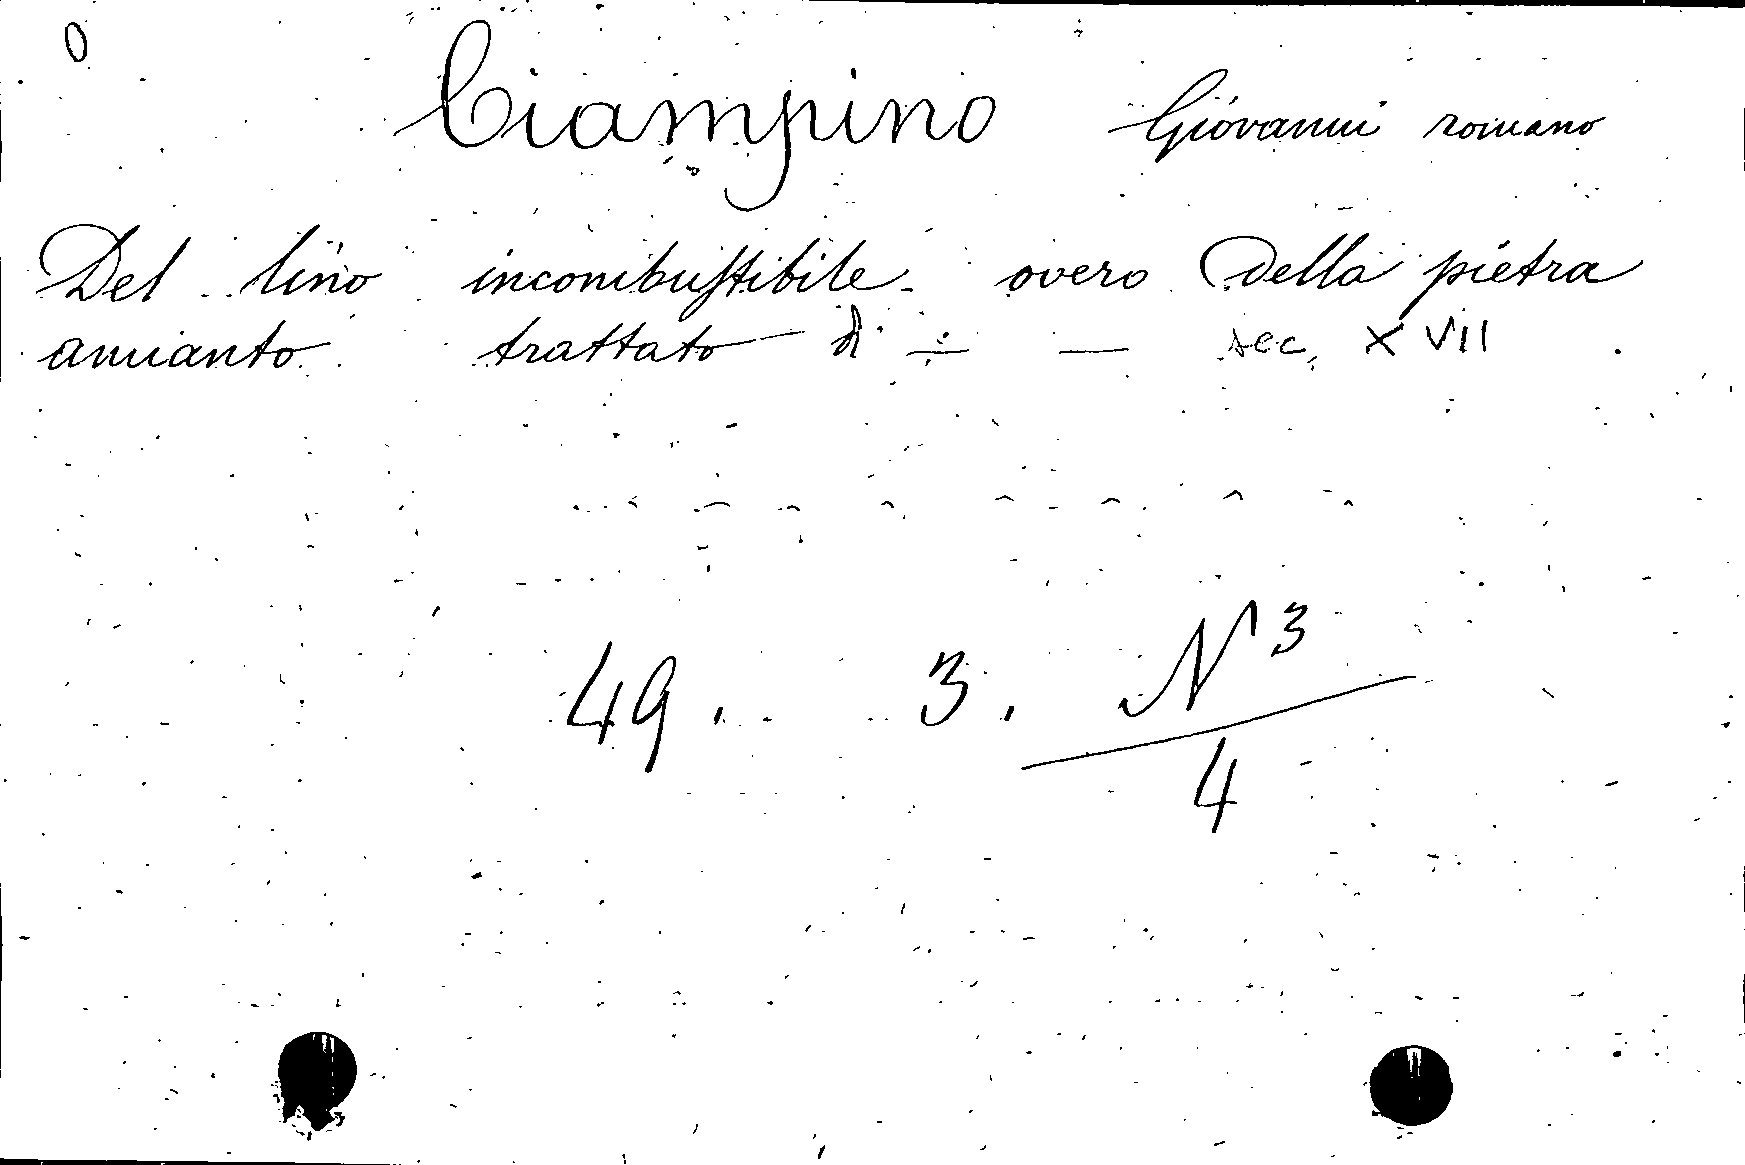 0
Ciampino Giovanni romano
Del lino incombustibile overo della pietra
amianto trattato di ÷ — sec. XVII
49. 3. N 3
4